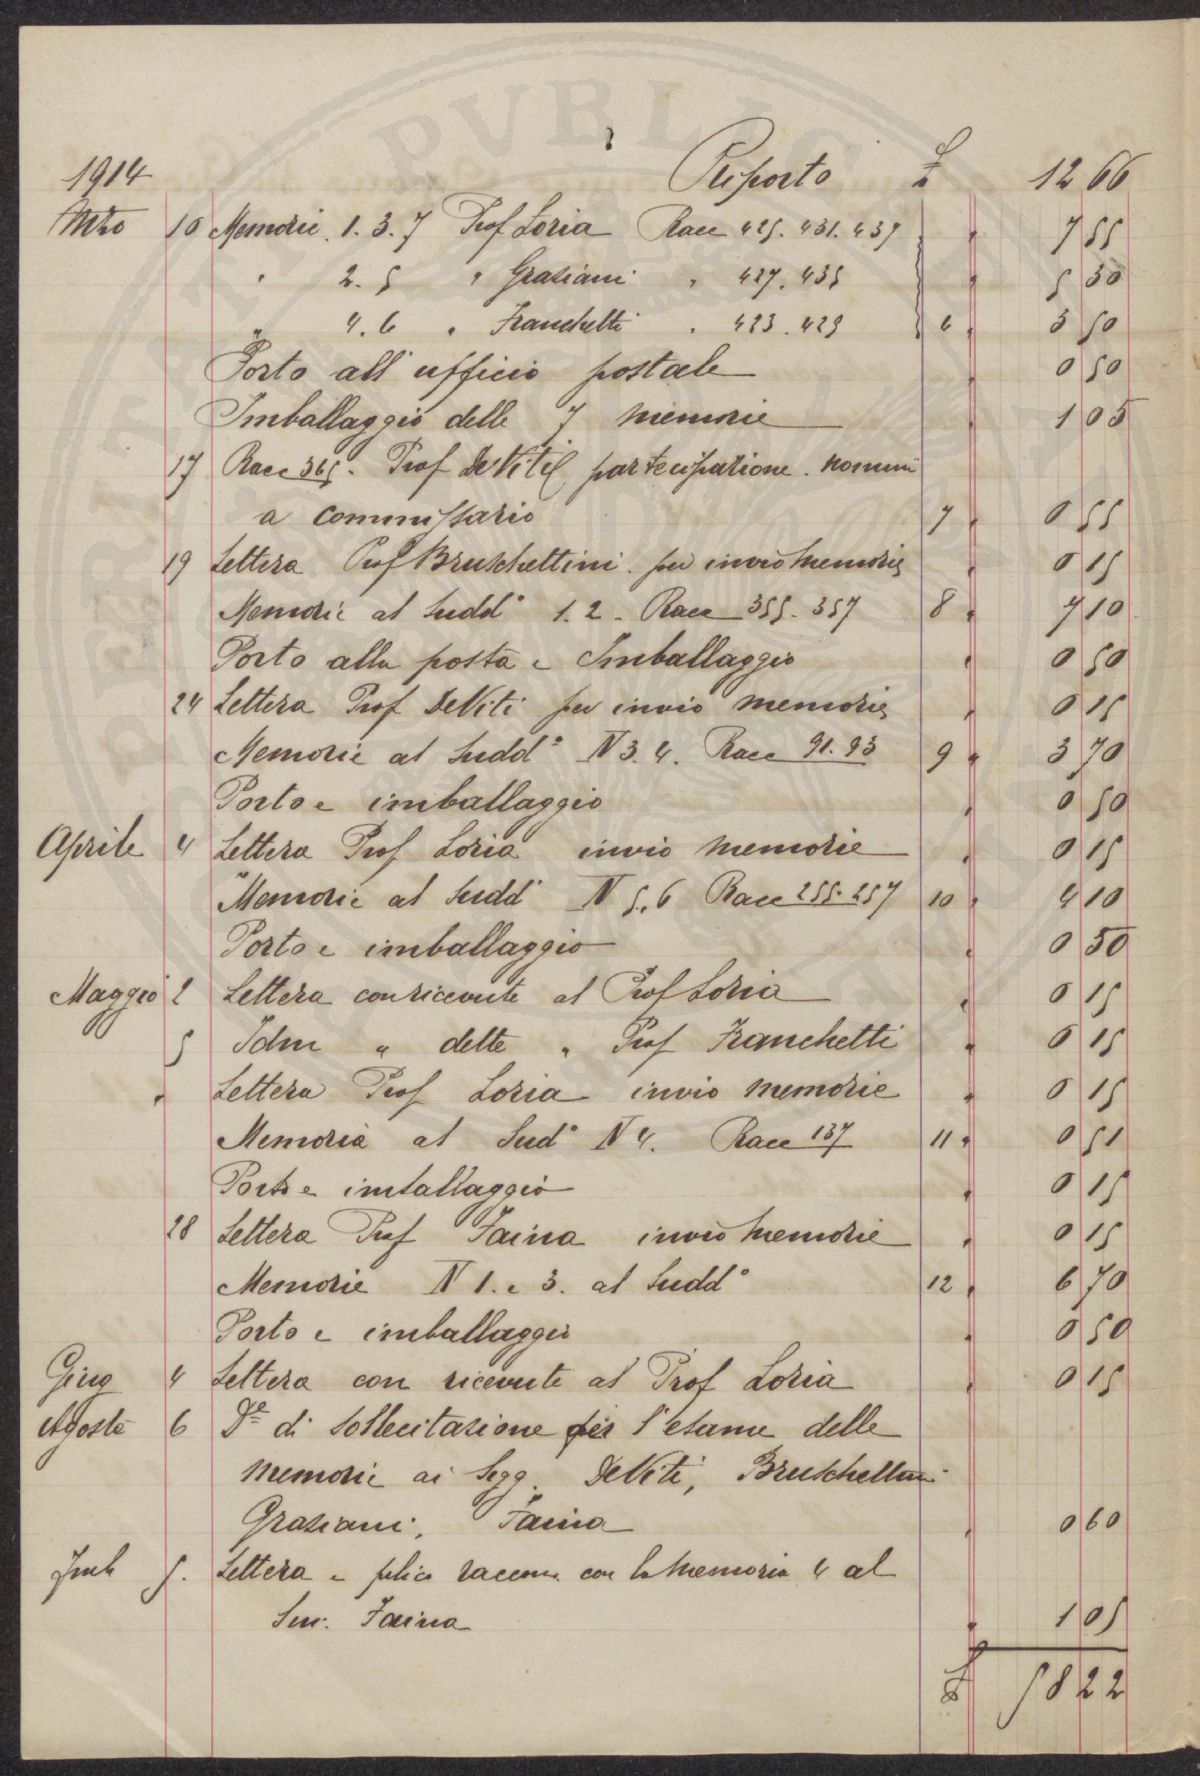 PERITATI PVBLIC
1914 Riporto £ 12 66
Mrzo 10 Memorie. 1. 3. 7 Prof Loria Racc 425. 431. 437 " 7 55
" 2. 5 " Graziani " 427. 435 " 5 30
" 4. 6 " Franchetti " 423. 429 6 " 3 50
Porto all' ufficio postale " 0 50
Imballaggio delle 7 memorie " 1 05
17 Racc 365. Prof DeViti partecipazione. nomina
a commissario 7 " 0 55
19 Lettera Prof Bruschettini. per invio memorie " 0 15
Memorie al Sudd° 1. 2. Racc 355. 357 8 " 7 10
Porto alla posta e Imballaggio " 0 50
24 Lettera Prof DeViti per invio memorie " 0 15
Memorie al Sudd° N 3. 4. Racc 91. 93 9 " 3 70
Porto e imballaggio " 0 50
Aprile 4 Lettera Prof Loria invio memorie " 0 15
Memorie al Sudd° N 5. 6 Racc 255. 257 10 " 4 10
Porto e imballaggio " 0 50
Maggio 2 Lettera con ricevute al Prof Loria " 0 15
5 Idm " dette " Prof Franchetti " 0 15
" Lettera Prof Loria invio memorie " 0 15
Memoria al Sud° N 4. Racc 137 11 " 0 51
Porto e imballaggio " 0 15
28 Lettera Prof Faina invio memorie " 0 15
Memorie N 1. e 3. al Sudd° 12 " 6 70
Porto e imballaggio " 0 50
Giug 4 Lettera con ricevute al Prof Loria " 0 15
Agosto 6 D.e di sollecitazione per l'esame delle
memorie ai Sigg. DeViti, Bruschettini
Graziani, Faina " 0 60
5. Lettera e plico raccom. con la memoria 4 al
Sen. Faina " 1 05
£ 58 22